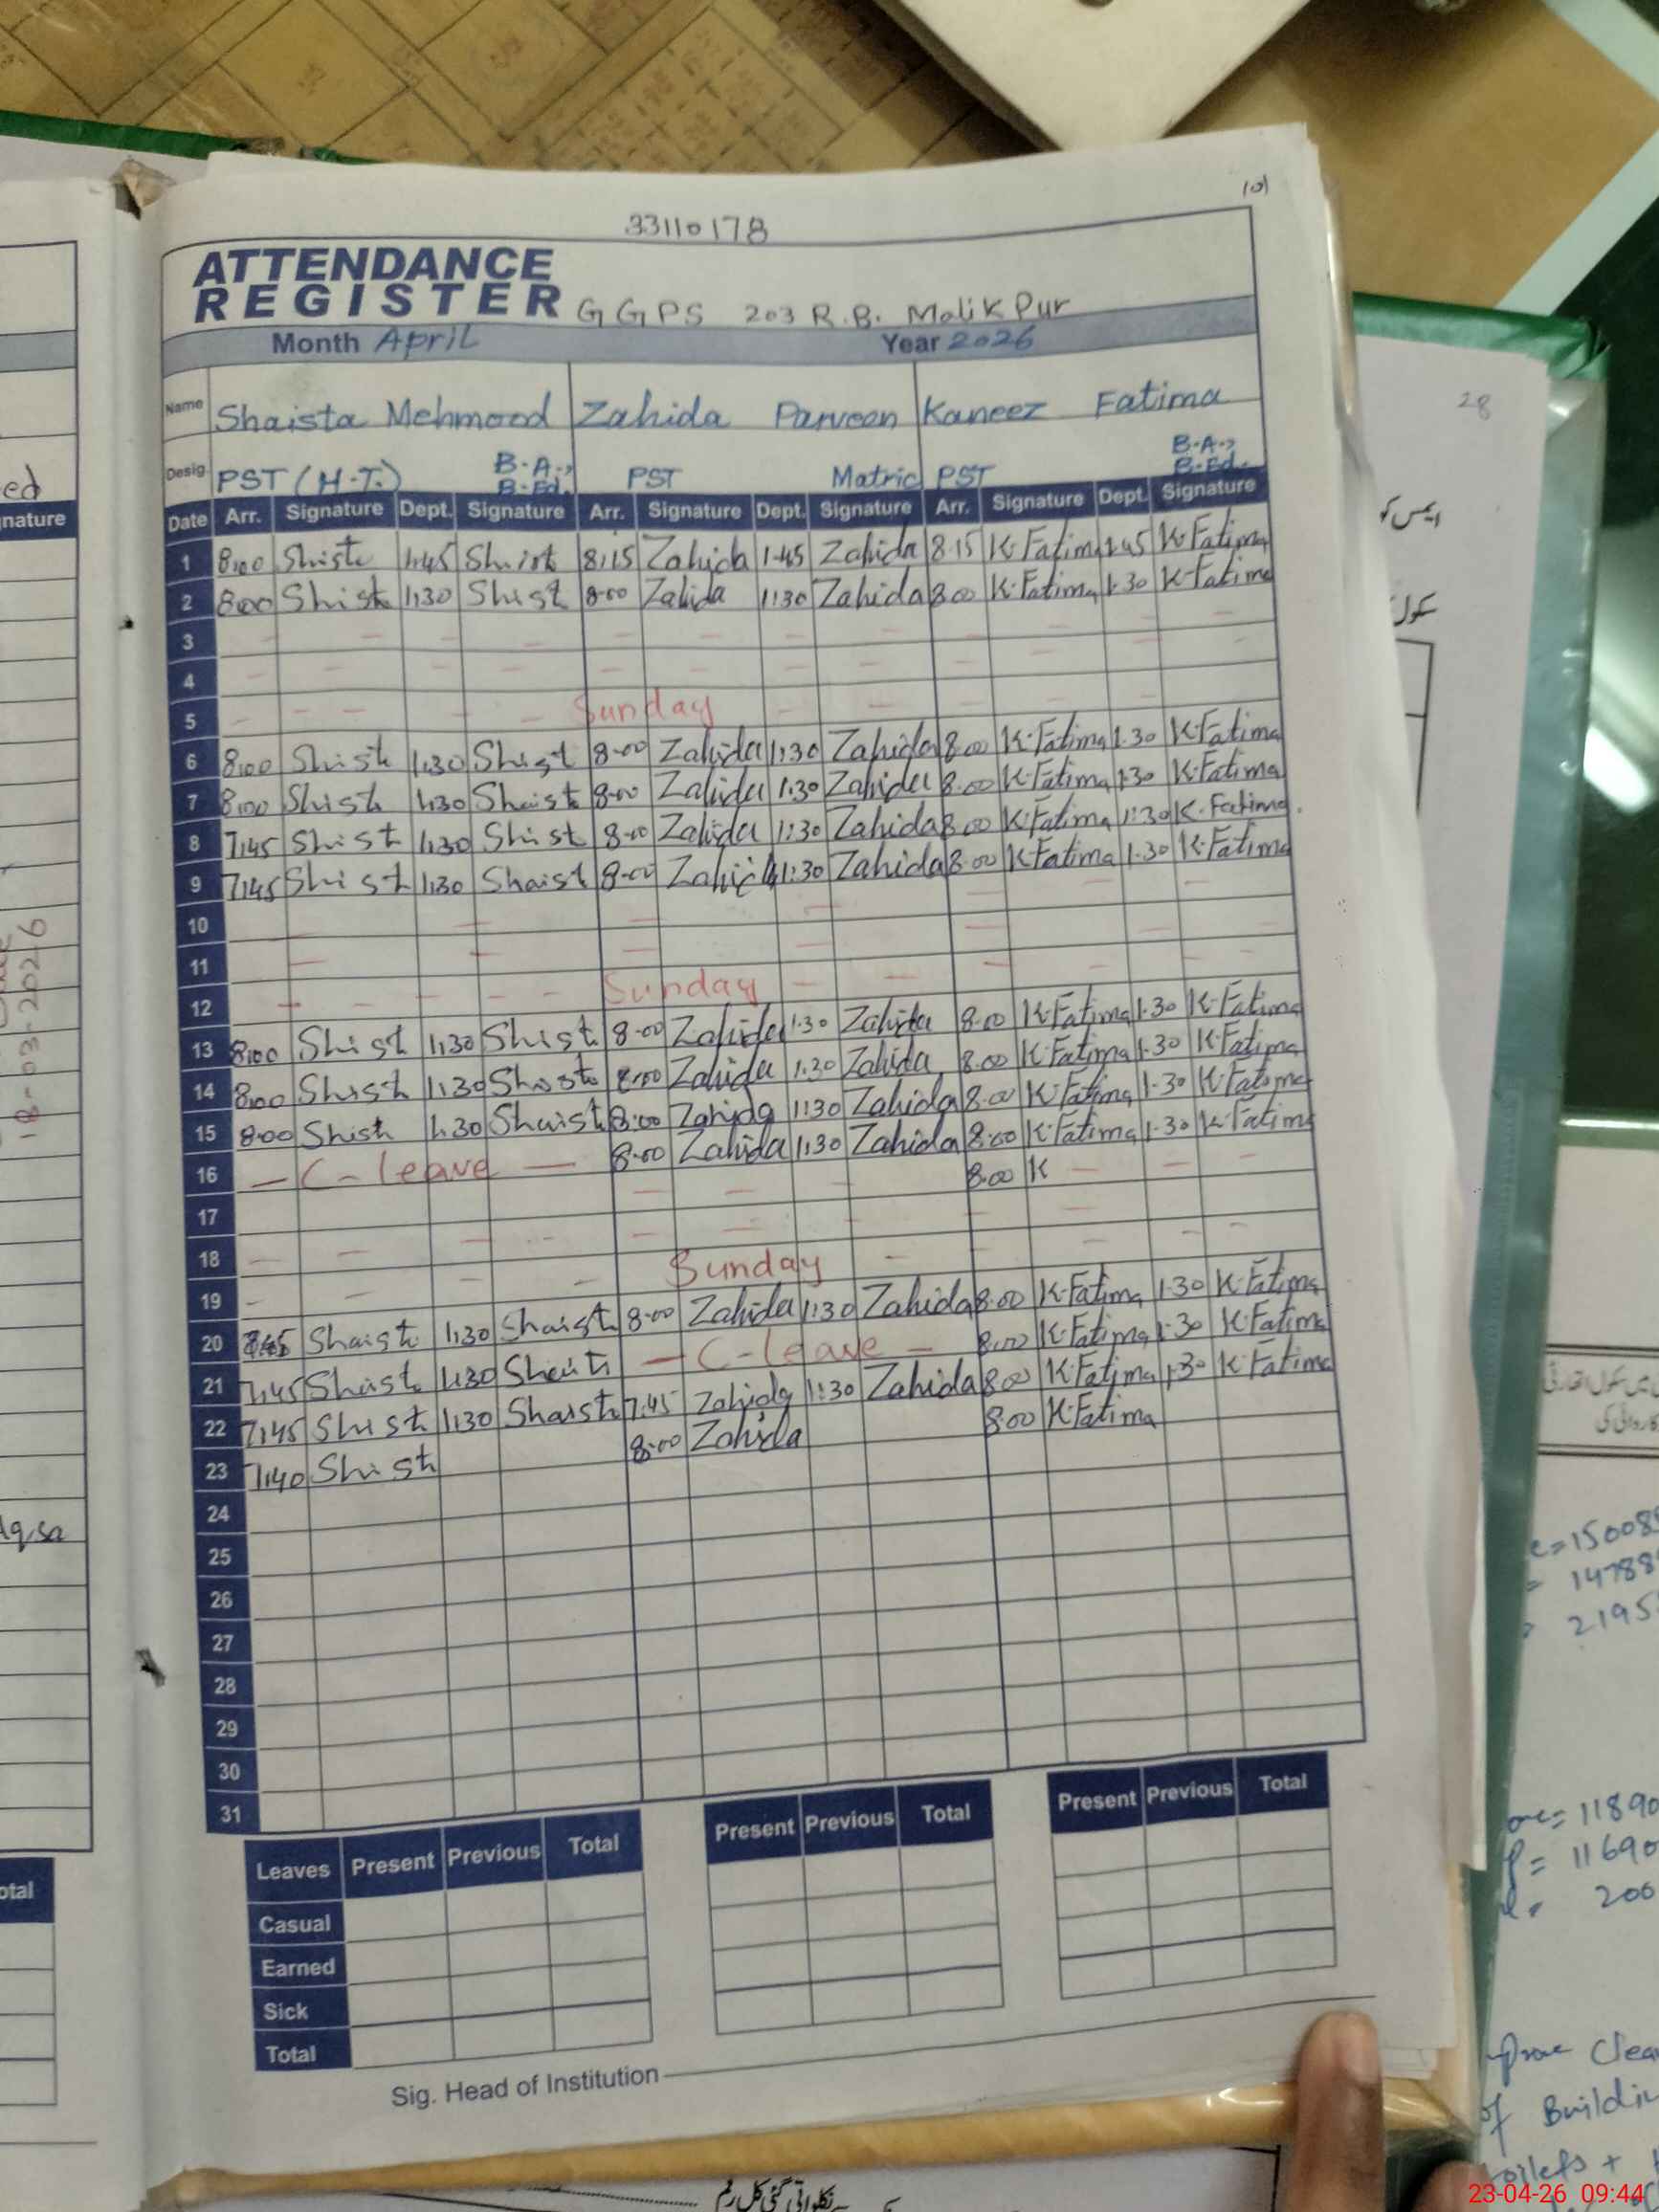 101
33110178
ATTENDANCE
REGISTER GGPS 203 R.B. Malik Pur
Month April Year 2026
Name Shaista Mehmood Zahida Parveen Kaneez Fatima
Desig. PST (H.T.) B.A., B.Ed. PST Matric PST B.A., B.Ed.
Date Arr. Signature Dept. Signature Arr. Signature Dept. Signature Arr. Signature Dept. Signature
1 8:00 Shist 1:45 Shist 8:15 Zahida 1:45 Zahida 8.15 K.Fatima 1.45 K.Fatima
2 8:00 Shist 1:30 Shist 8:00 Zahida 1:30 Zahida 8.00 K.Fatima 1.30 K.Fatima
3
4
5 Sunday
6 8:00 Shist 1:30 Shist 8:00 Zahida 1:30 Zahida 8.00 K.Fatima 1.30 K.Fatima
7 8:00 Shist 1:30 Shaist 8:00 Zahida 1:30 Zahida 8.00 K.Fatima 1.30 K.Fatima
8 7:45 Shist 1:30 Shist 8:00 Zahida 1:30 Zahida 8.00 K.Fatima 1:30 K.Fatima
9 7:45 Shist 1:30 Shaist 8:00 Zahida 1:30 Zahida 8.00 K.Fatima 1.30 K.Fatima
10
11
12 Sunday
13 8:00 Shist 1:30 Shist 8:00 Zahida 1:30 Zahida 8.00 K.Fatima 1.30 K.Fatima
14 8:00 Shist 1:30 Shast 8:00 Zahida 1:30 Zahida 8.00 K.Fatima 1.30 K.Fatima
15 8:00 Shist 1:30 Shaist 8:00 Zahida 1:30 Zahida 8.00 K.Fatima 1.30 K.Fatima
16 — C-leave — 8:00 Zahida 1:30 Zahida 8:00 K.Fatima 1.30 K.Fatima
17 8.00 K
18
19 Sunday
20 7:45 Shaist 1:30 Shaist 8:00 Zahida 1:30 Zahida 8.00 K.Fatima 1.30 K.Fatima
21 7:45 Shaist 1:30 Shaist — C-leave — 8.00 K.Fatima 1.30 K.Fatima
22 7:45 Shist 1:30 Shaist 7:45 Zahida 1:30 Zahida 8.00 K.Fatima 1.30 K.Fatima
23 7:40 Shist 8:00 Zahida 8.00 K.Fatima
24
25
26
27
28
29
30
31
Leaves Present Previous Total Present Previous Total Present Previous Total
Casual
Earned
Sick
Total
Sig. Head of Institution
ed
nature
18-03-2026
Aqsa
otal
28
سکول
=15008
= 14788
2195
= 11890
= 11690
200
Clea
of Buildin
toilets +
23-04-26 09:44